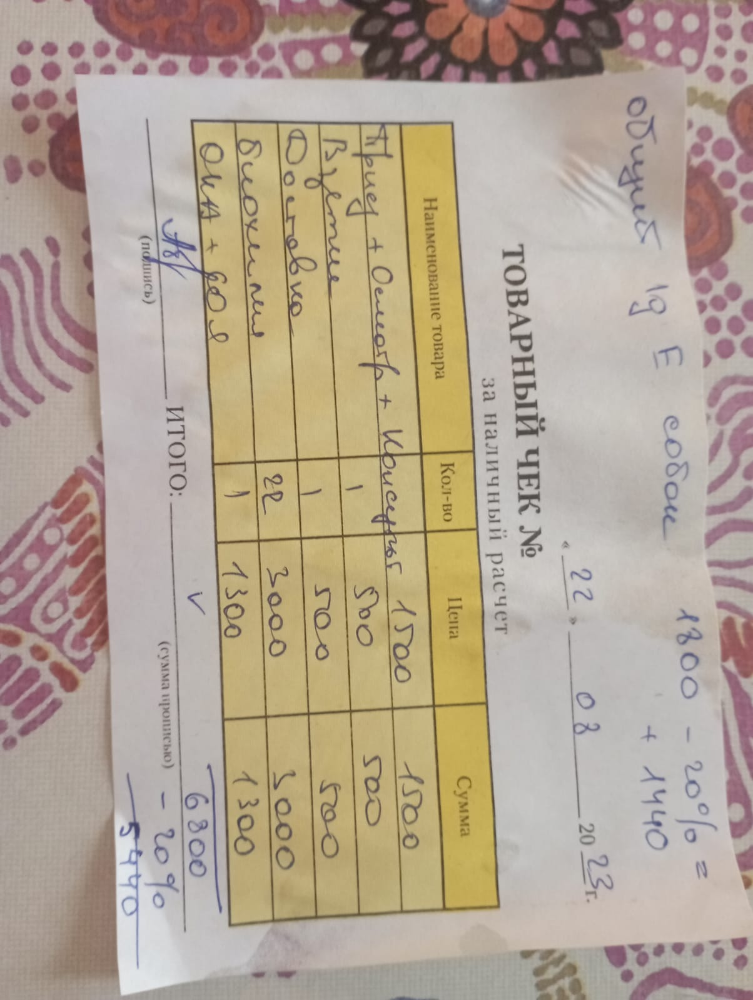 общий Ig E собак 1800 - 20% =
+ 1440
« 22 » 08 2023 г.
ТОВАРНЫЙ ЧЕК №
за наличный расчет
Наименование товара Кол-во Цена Сумма
Прием + Осмотр + Консульт 1500 1500
Взятие 1 500 500
Доставка 1 500 500
биохимия 22 3000 3000
ОКА + 1 1300 1300
6800
ИТОГО: V
(подпись) (сумма прописью) - 20%
5440